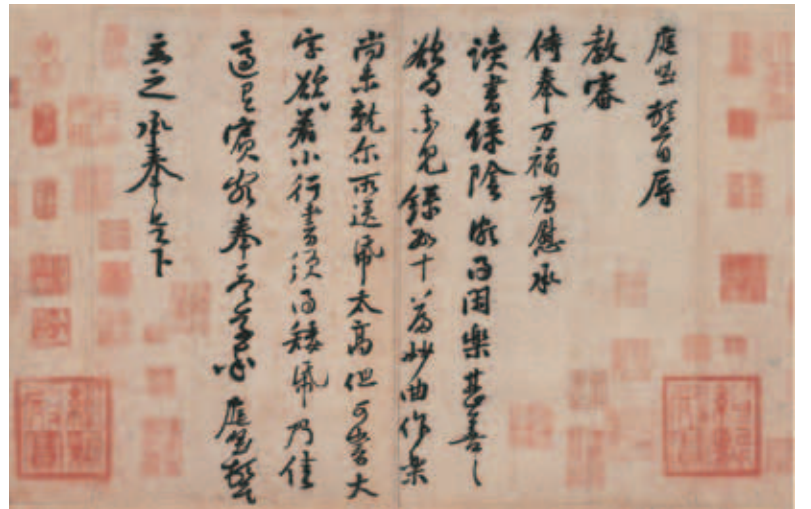 庭堅頓首辱
教審
侍奉万福為慰承
讀書綠陰頗得閑樂甚善〻
欲為索兒錄數十篇妙曲作樂
尚未就尔所送紙太高但可書大
字欲若小行書須得矮紙乃佳
適有賓客奉答草率庭堅頓首
立之承奉足下